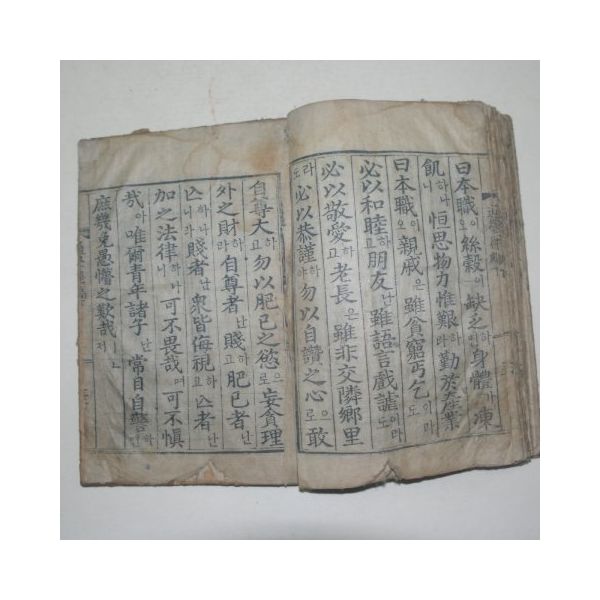 日本職이 絲穀이 缺乏하며 身體가 凍
飢하나니 恒思物力惟艱하라 勤於產業
日本職이오 親戚은 雖貧窮丐乞이라도
必以和睦하고 朋友난 雖語言戲謔이라도
必以敬愛하고 老長은 雖非交隣鄕里
라도 必以恭謹하야 勿以自讚之心으로 敢
自尊大하고 勿以肥己之慾으로 妄貪理
外之財하라 自尊者난 賤하고 肥己者난
亾하나니라 賤者난 衆皆侮視하고 亾者난
加之法律하나니 可不畏哉며 可不愼
哉아 唯爾青年諸子난 常自自警하야
庶幾免愚懵之歎哉저